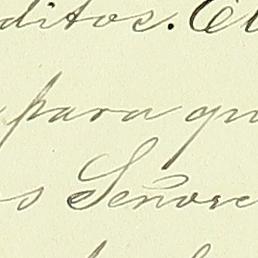 ditos. El
para qu
s Señores